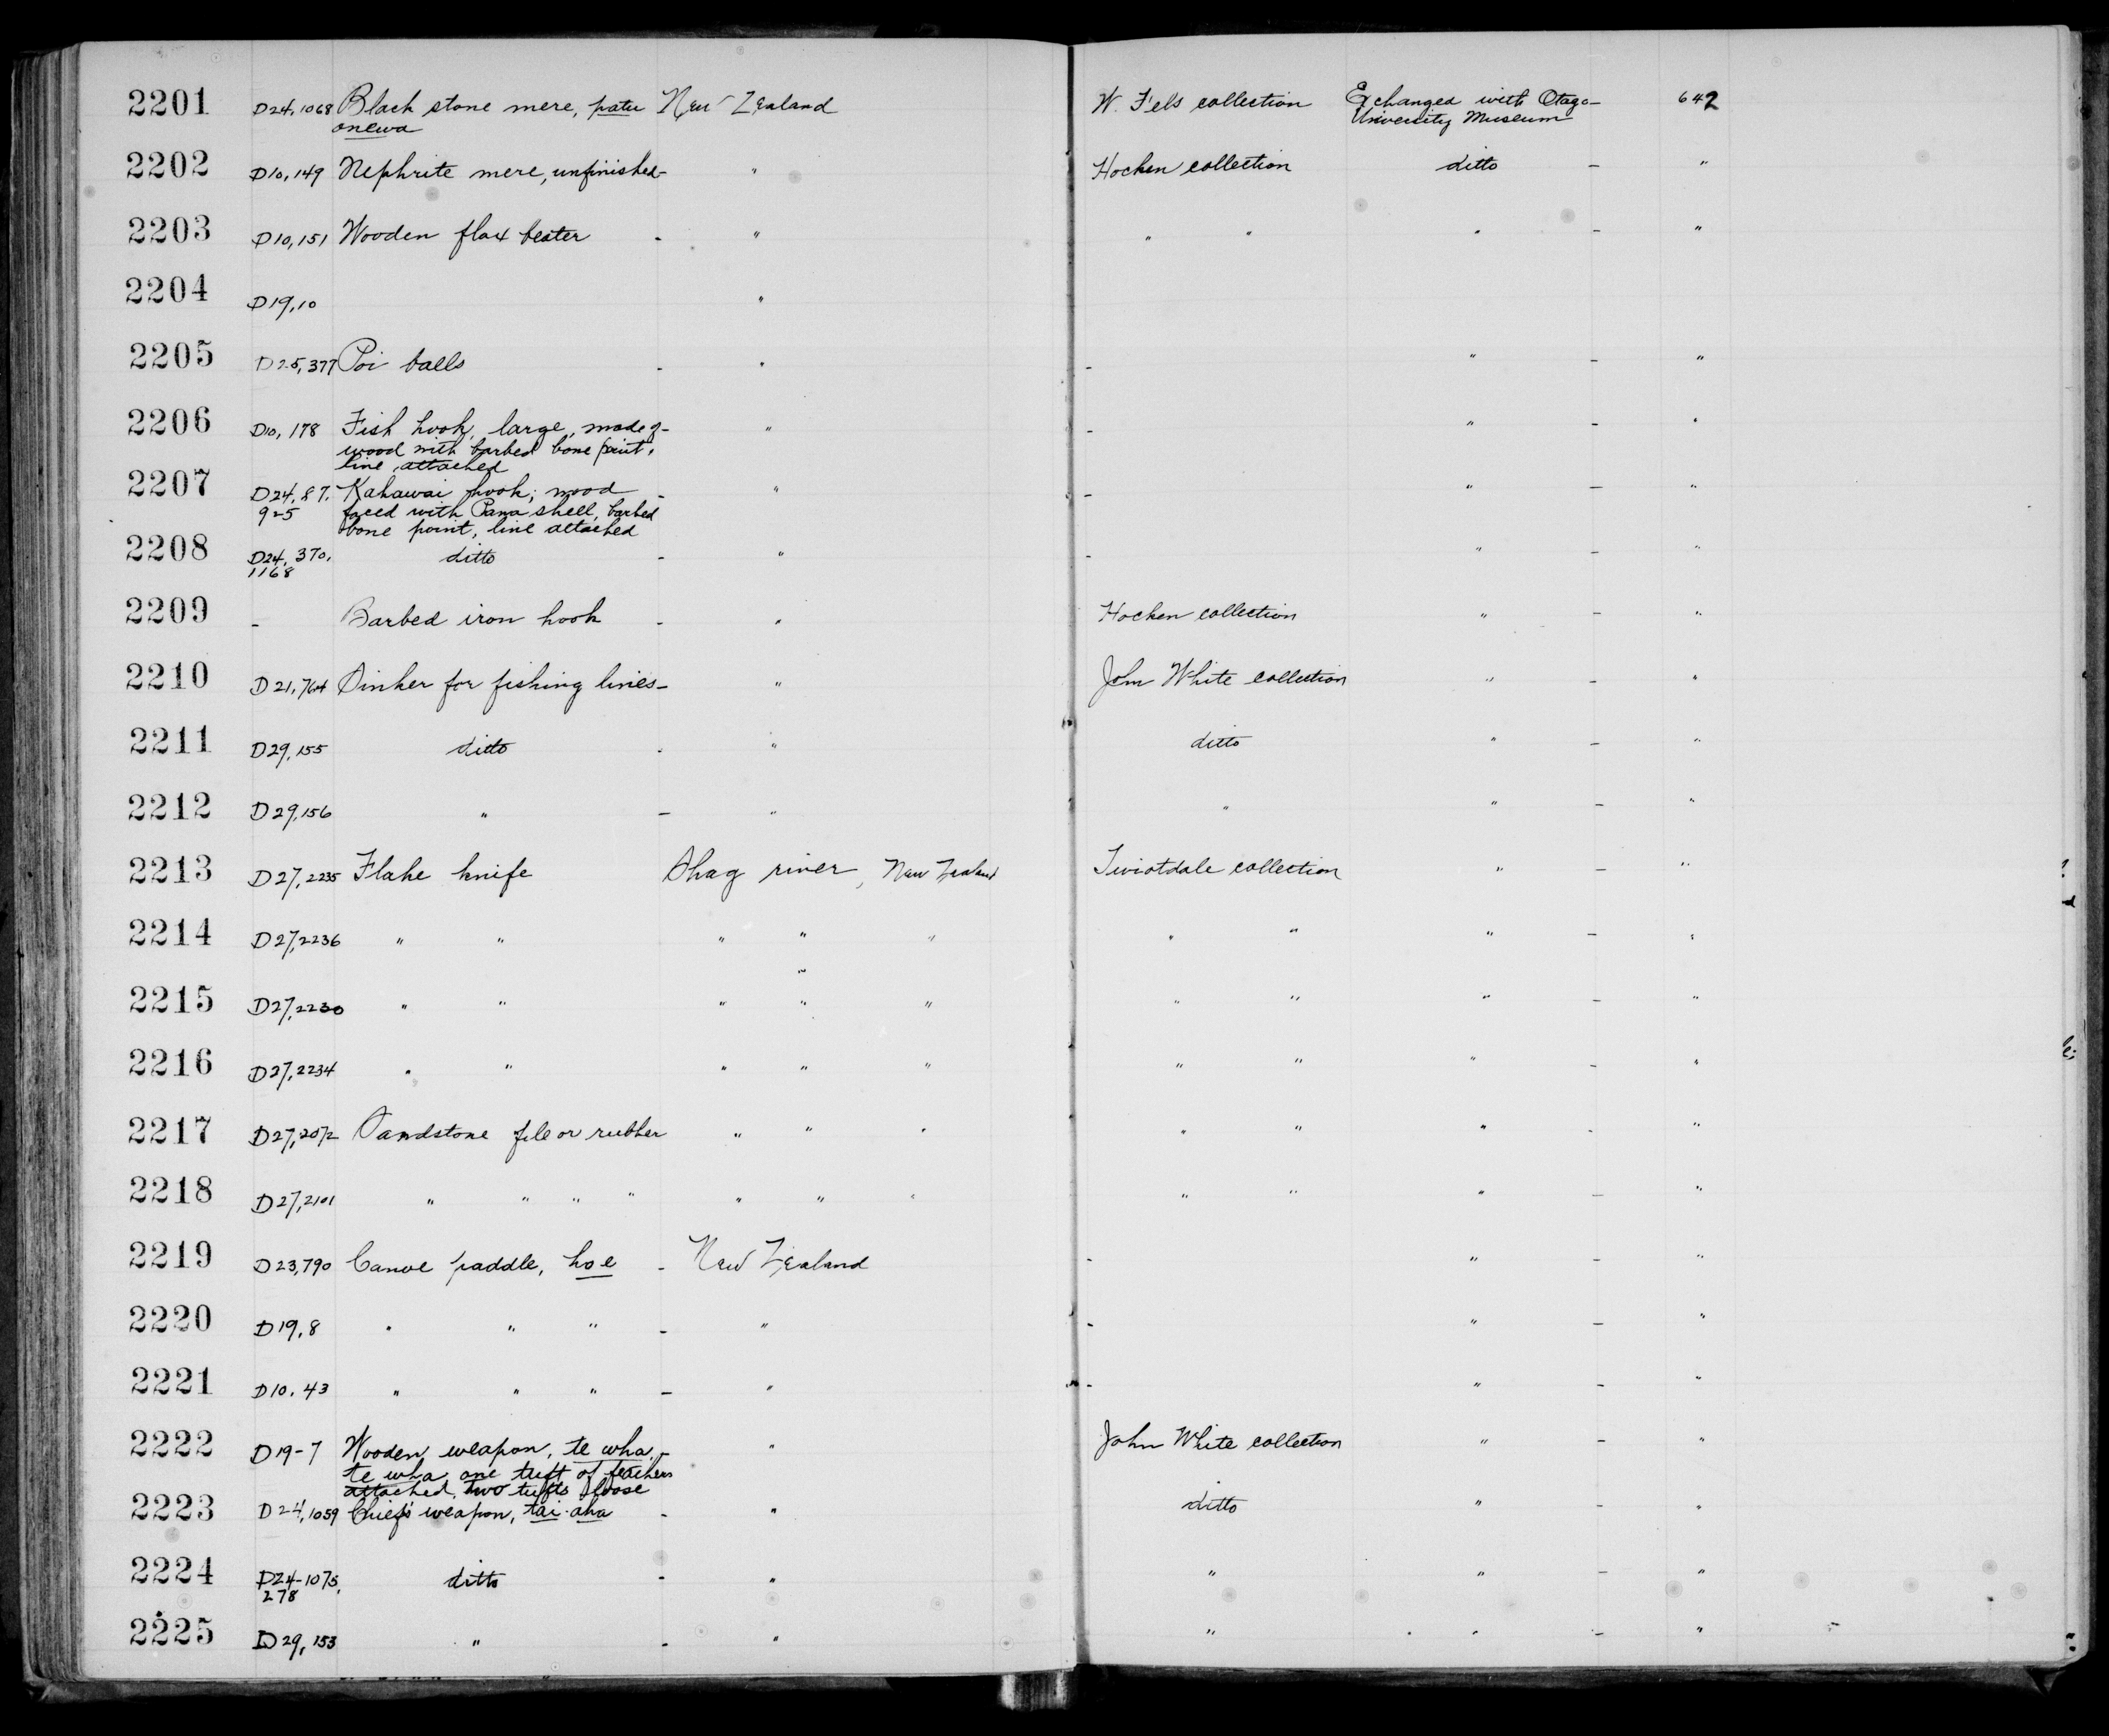 2201 D24,1068 Black stone mere, patu New Zealand W. Fels collection Exchanged with Otago - 642
onewa University Museum
2202 D10,149 Nephrite mere, unfinished - " Hocken collection ditto - "
2203 D10,151 Wooden flax beater - " " " " - "
2204 D19,10 "
2205 D25,377 Poi balls - " - " - "
2206 D10,178 Fish hook, large, made of - " - " - "
wood with barbed bone point,
line attached
2207 D24,87, Kahawai hook; wood - " - " - "
925 faced with Paua shell, barbed
bone point, line attached
2208 D24,370, ditto - " - " - "
1168
2209 - Barbed iron hook - " Hocken collection " - "
2210 D21,764 Sinker for fishing lines - " John White collection " - "
2211 D29,155 ditto - " ditto " - "
2212 D29,156 " - " " " - "
2213 D27,2235 Flake knife Shag river, New Zealand Teviotdale collection " - "
2214 D27,2236 " " " " " " " " - "
2215 D27,2230 " " " " " " " " - "
2216 D27,2234 " " " " " " " " - "
2217 D27,2072 Sandstone file or rubber " " " " " " - "
2218 D27,2101 " " " " " " " " " " - "
2219 D23,790 Canoe paddle, hoe - New Zealand - " - "
2220 D19,8 " " " - " - " - "
2221 D10,43 " " " - " - " - "
2222 D19-7 Wooden weapon, te wha - " John White collection " - "
te wha, one tuft of feathers
attached, two tufts loose
2223 D24,1059 Chief's weapon, tai-aha - " ditto " - "
2224 D24-1075, ditto - " " " - "
278
2225 D29,153 " - " " " - "